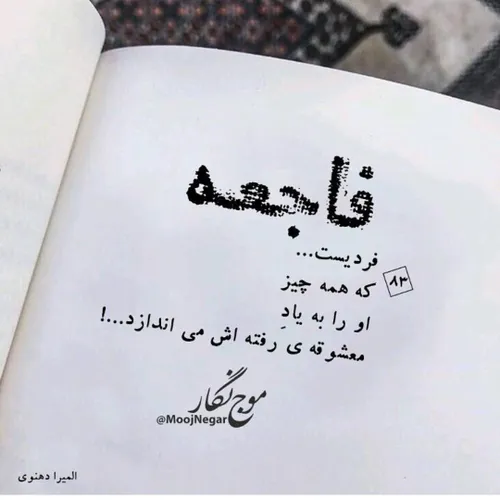 فاجعه
فردیست...
که همه چیز
۸۳
او را به یادِ
معشوقه ی رفته اش می اندازد...!
موج نگار
@MoojNegar
المیرا دهنوی